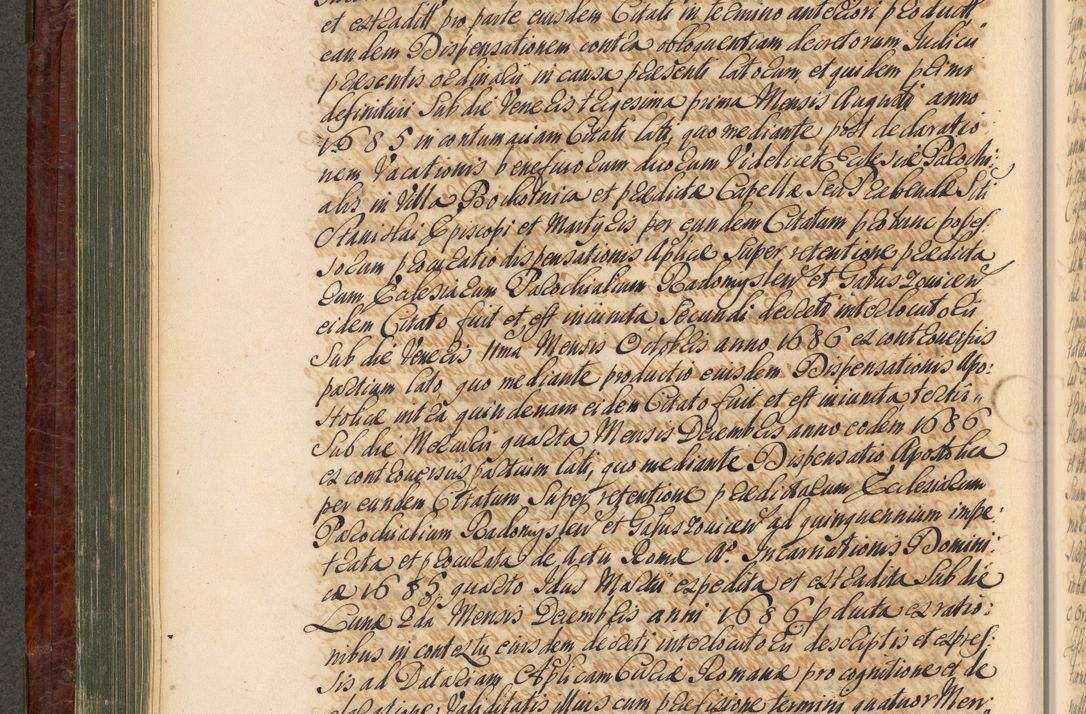 et extradit pro parte eiusdem Citati in termino anteriori product
eandem Dispensationem contra obloquentiam decretorum Iudicii
præsentis ordinarii in causa præsenti latorum, et quidem primi
definitivi Sub die Veneris trigesima prima Mensis Augusti anno
1685 in contumaciam Citati lati, quo mediante post declaratio
nem Vacationis beneficiorum duorum Videlicet Ecclesiæ Parochi:
alis in Villa Bochotnica et prædictæ Capellæ Seu Præbendæ Sti
Stanislai Episcopi et Martyris per eundem Citatum pro tunc posses
sorum procuratio dispensationis Aplicæ Super retentione prædicta
rum Ecclesiarum Parochialium Radomyslen et Gasuszovicen
eidem Citato fuit et est iniuncta, Secundi decreti interlocutorii
Sub die Veneris 11ma Mensis Octobris anno 1686 ex controversiis
partium lato, quo mediante productio eiusdem Dispensationis Apo:
stolicæ intra quindenam eidem Citato fuit et est iniuncta, tertii
Sub die Mercurii quarta Mensis Decembris anno eodem 1686
ex controversiis partium lati, quo mediante Dispensatio Apostolica
per eundem Citatum Super retentione prædictarum Ecclesiarum
Parochialium Radomyslen et Gasuszovicen ad quinquennium impe:
trata et procurata de Actu Romæ Ao. Incarnationis Domini:
cæ 1685 quarto Idus Martii expedita et extradita Sub die
Lunæ 2da Mensis Decembris anni 1686 pducta ex ratio:
nibus in contextu eiusdem decreti interlocutorii descriptis et expres:
sis ad Datariam Aplicam Curiæ Romanæ pro cognitione et de
claratione Validitatis illius cum præfixione termini quatuor Men: